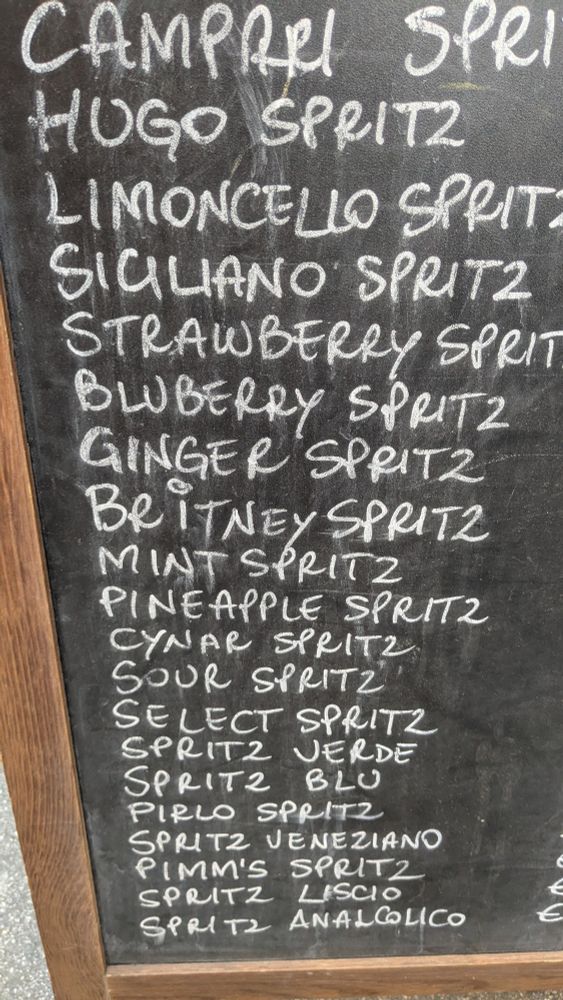 CAMPARI SPRI
HUGO SPRITZ
LIMONCELLO SPRITZ
SICILIANO SPRITZ
STRAWBERRY SPRIT
BLUBERRY SPRITZ
GINGER SPRITZ
BRITNEY SPRITZ
MINT SPRITZ
PINEAPPLE SPRITZ
CYNAR SPRITZ
SOUR SPRITZ
SELECT SPRITZ
SPRITZ VERDE
SPRITZ BLU
PIRLO SPRITZ
SPRITZ VENEZIANO
PIMM'S SPRITZ
SPRITZ LISCIO
SPRITZ ANALCOLICO €